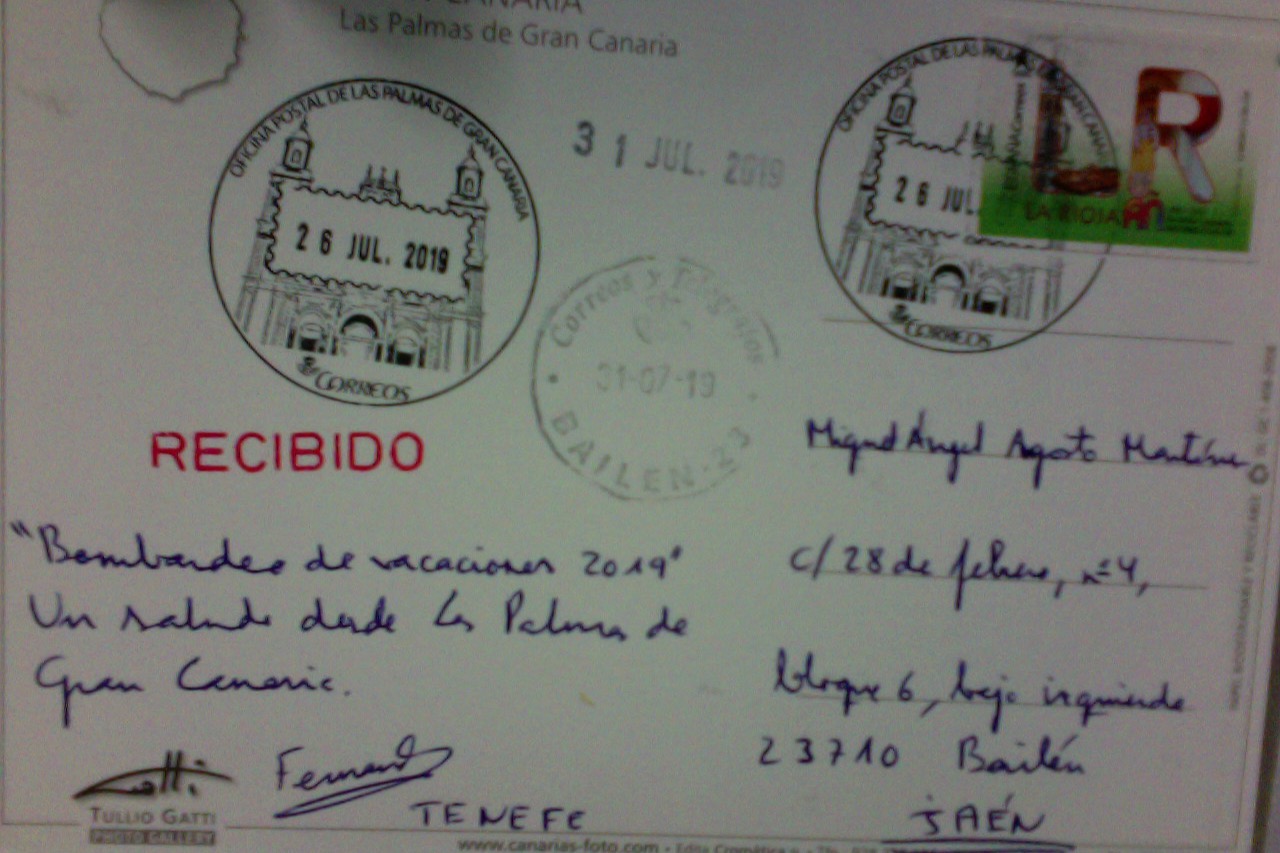 CANARIA
Las Palmas de Gran Canaria
OFICINA POSTAL DE LAS PALMAS DE GRAN CANARIA
26 JUL. 2019
CORREOS
31 JUL. 2019
Correos y Telégrafos
31-07-19
BAILEN-23
OFICINA POSTAL DE LAS PALMAS DE GRAN CANARIA
26 JUL.
CORREOS
ESPAÑA Correos
LR
LA RIOJA
RECIBIDO
"Bombardeo de vacaciones 2019"
Un saludo desde Las Palmas de
Gran Canaria.
Fernando
TENEFE
Miguel Ángel Agosto Martínez
c/ 28 de febrero, nº 4,
bloque 6, bajo izquierda
23710 Bailén
JAÉN
Gatti
TULLIO GATTI
PHOTO GALLERY
www.canarias-foto.com